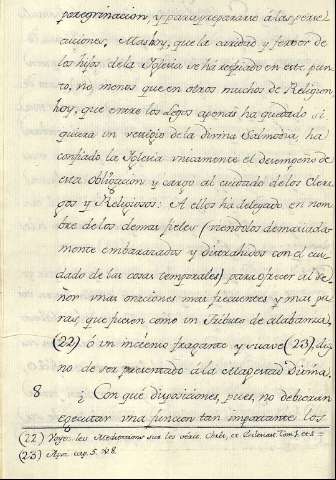 peregrinacion, y para prepararse á las perse
cuciones. Mas hoy, que la caridad y fervor de
los hijos de la Iglesia se há resfriado en este pun
to, no menos que en otros muchos de Religion
hoy, que entre los Legos apenas ha quedado si
quiera un vestigio de la divina Salmodia, ha
confiado la Iglesia unicamente el desempeño de
esta obligacion y cargo al cuidado de los Cleri
gos y Religiosos: A ellos há delegado en nom
bre de los demas fieles (viendolos demasiada
mente embarazados y distrahidos con el cui
dado de las cosas temporales) para ofrecer al Se
ñor unas oraciones mas frecuentes y mas pu
ras, que fuesen como un Tributo de alabanza
(22) ó un incienso fragante y suave (23), dig
no de ser presentado á la Magestad Divina.
8 ¿Con qué disposiciones, pues, no debieran
egecutar una funcion tan importante los
(22) les Meditations sur les
(23) Apoc. cap. 5. v. 8.